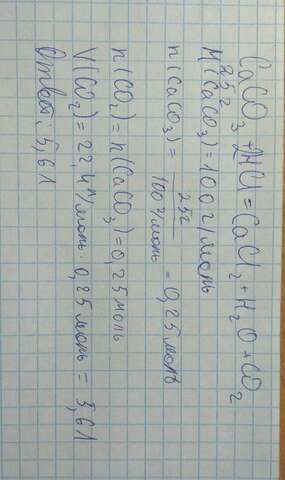 CaCO3 + 2HCl = CaCl2 + H2O + CO2
25г
M(CaCO3) = 100г/моль
n(CaCO3) = 25г / 100г/моль = 0,25моль
n(CO2) = n(CaCO3) = 0,25моль
V(CO2) = 22,4л/моль · 0,25моль = 5,6л
Ответ: 5,6л